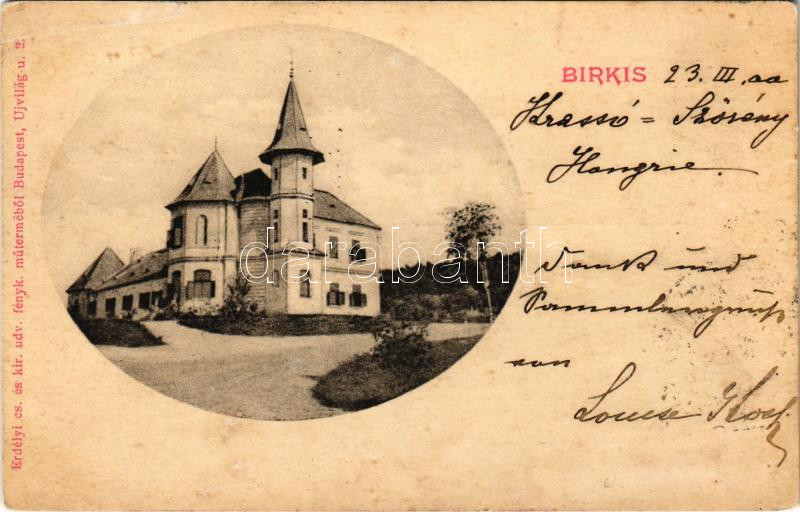 Erdélyi cs. és kir. udv. fényk. műterméből Budapest, Ujvilág-u. 2.
BIRKIS 23. III. 00
Krassó = Szörény
Hongrie.
darabanth.com
Dank und
Sammlergruß
von
Louise